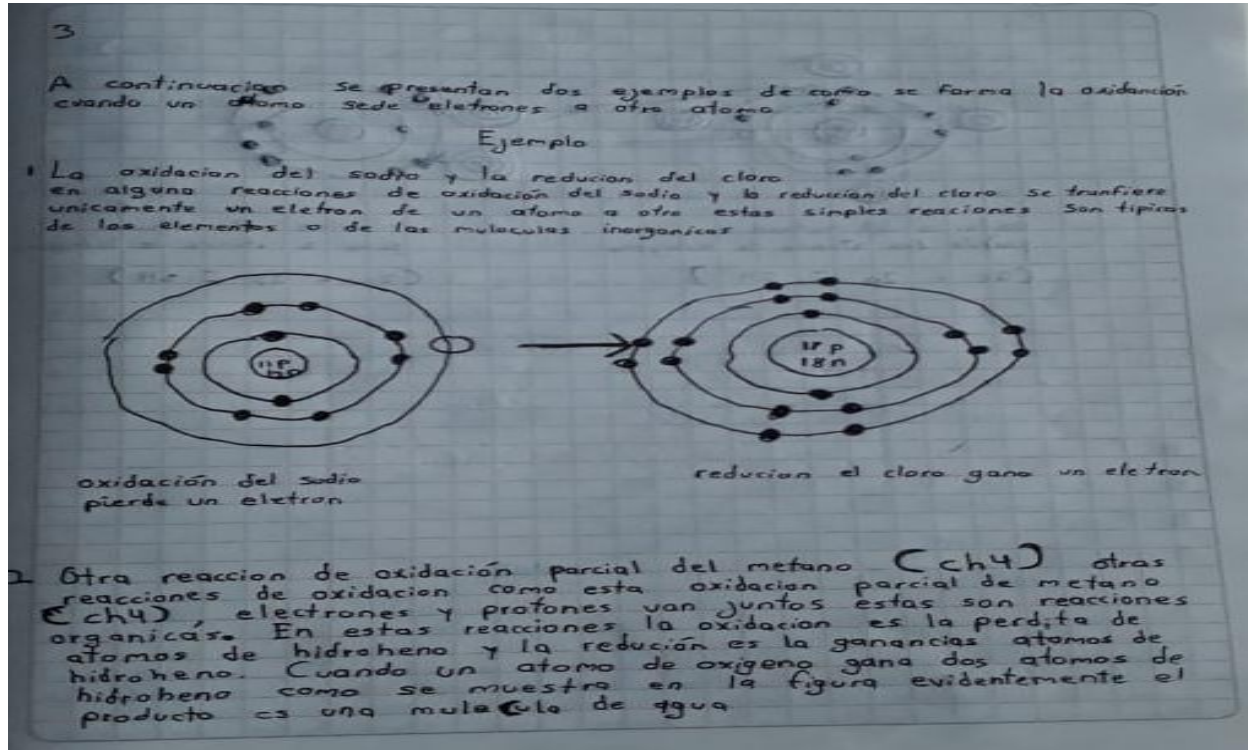 3
A continuacion se presentan dos ejemplos de como se forma la oxidanción
cuando un atomo sede eletrones a otro atomo
Ejemplo
1 La oxidacion del sodio y la reducion del cloro
en alguna reacciones de oxidación del sodio y la reduccion del cloro se tranfiere
unicamente un eletron de un atomo a otro estas simples reaciones son tipicas
de los elementos o de las muleculas inorganicas
11 P
17 P
18 n
oxidación del sodio
pierde un eletron
reducion el cloro gana un eletron
2 Otra reaccion de oxidación parcial del metano (ch4) otras
reacciones de oxidacion como esta oxidacion parcial de metano
(ch4), electrones y protones van juntos estas son reacciones
organicás. En estas reacciones la oxidacion es la perdita de
atomos de hidroheno y la redución es la ganancias atomos de
hidroheno. Cuando un atomo de oxigeno gana dos atomos de
hidroheno como se muestra en la figura evidentemente el
producto es una mulecula de agua